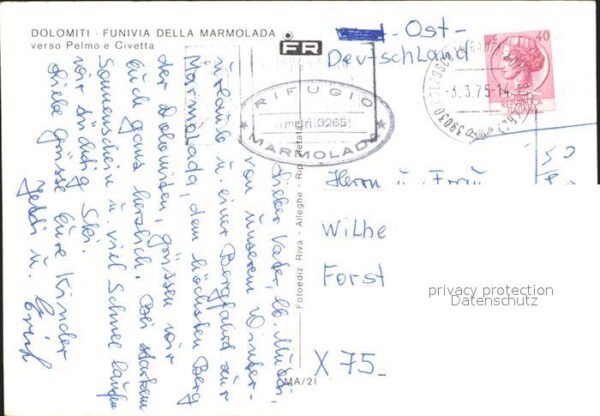 DOLOMITI - FUNIVIA DELLA MARMOLADA
verso Pelmo e Civetta
FR
Lieber Vater, lb. Mutti,
von unserem Winter-
urlaub u. einer Bergfahrt zur
Marmolada, dem höchsten Berg
der Dolomiten, grüssen wir
Euch ganz herzlich. Bei starkem
Sonnenschein u. viel Schnee laufen
wir tüchtig Ski.
Liebe Grüsse Eure Kinder
u. Erich
RIFUGIO
metri 3265
MARMOLADA
Fotoediz. Riva - Alleghe - Rip. vietata
MA/21
-Ost-
Deutschland
39030
-3.3.75-14
40
Herrn u. Frau
Wilhe
Forst
X 75
privacy protection
Datenschutz